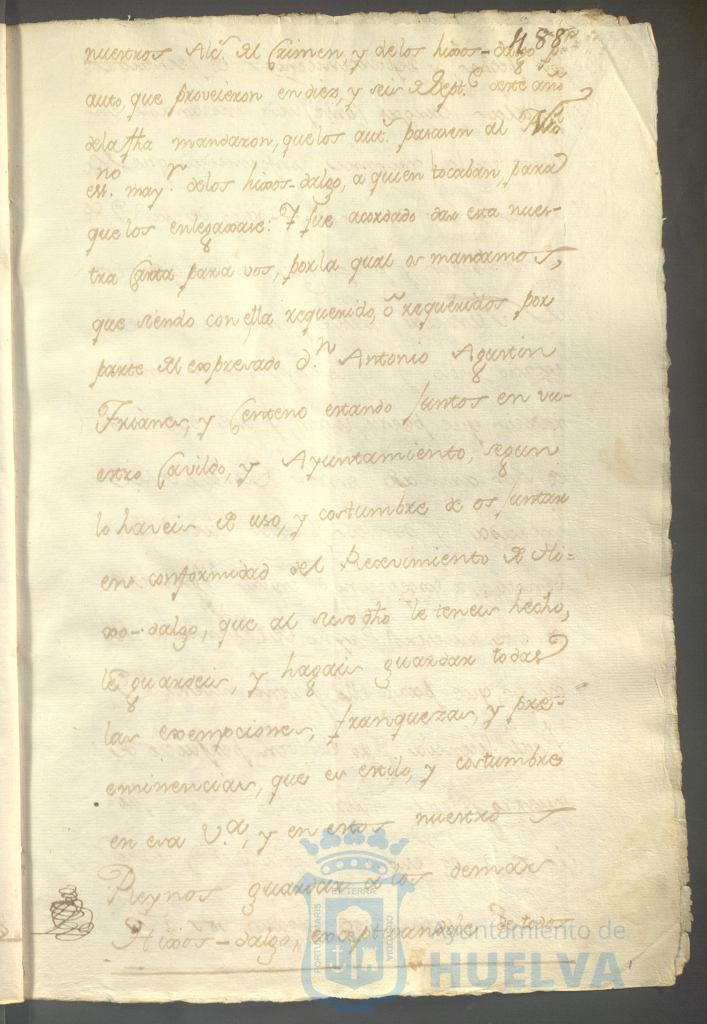 488
nuestros Alc.s del Crimen y de los hixos-dalgo p.r
auto, que proveieron en diez, y seis de Sept.e de este año
de la fha mandaron, que los aut.s pasasen al
ess.no may.r de los hixos-dalgo, a quien tocaban, para
que los enlegaxase: Y fue acordado dar esta nues-
tra Carta para vos, por la qual os mandamos,
que siendo con ella requerido, ô requeridos por
parte del expresado d.n Antonio Agustin
Frianes, y Centeno estando juntos en vu-
estro Cavildo, y Ayuntamiento, segun
lo haveis de uso, y costumbre de os juntar
en conformidad del Recevimiento de Hi=
xo-dalgo, que al suso dho le teneis hecho,
le guardeis, y hagais guardar todas
las exempciones, franquezas, y pre-
eminencias, que es estilo, y costumbre
en esa V.a, y en estos nuestros
Reynos guardar a los demas
Hixos-dalgo, exceptuandole de todos
PORTUS MARIS ET TERRAE CUSTODIA
Ayuntamiento de
HUELVA